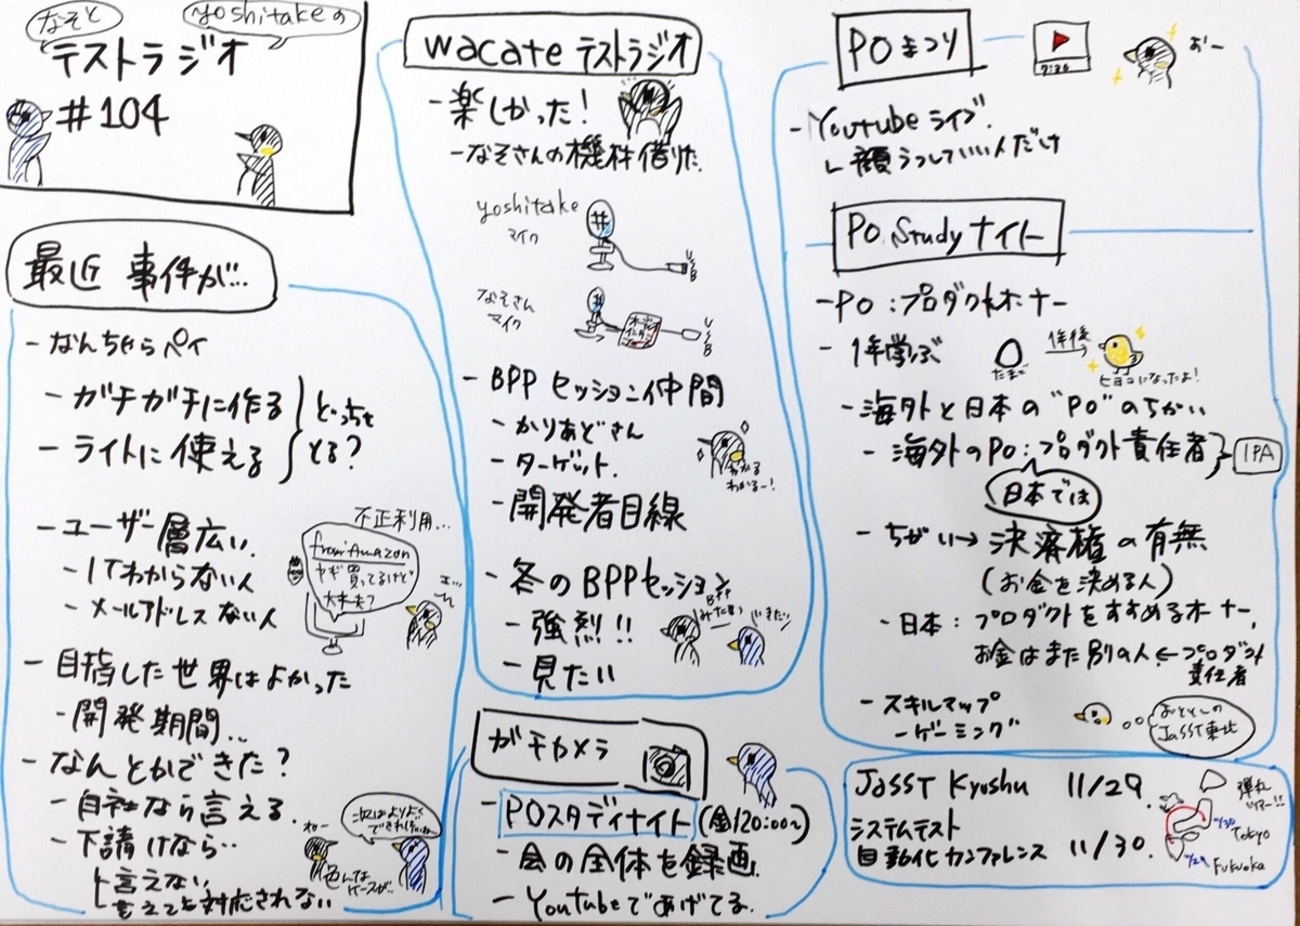 なそと
yoshitakeの
テストラジオ
#104
最近 事件が…
- なんちゃらペイ
- ガチガチに作る
- ライトに使える
どっちを
とる?
- ユーザー層広い
- ITわからない人
- メールアドレスない人
不正利用…
from Amazon
ヤギ買ってるけど
大丈夫?
エ…
- 目指した世界はよかった
- 開発期間…
- なんとかできた?
- 自社なら言える.
- 下請けなら…
言えない
言えても対応されない
次はよりよく
できればいいね
色んな
ケースが…
wacate テストラジオ
- 楽しかった!
- なそさんの機材借りた
yoshitake
マイク
USB
なそさん
マイク
USB
- BPP セッション仲間
- かりあどさん
- ターゲット.
わかる
わかるー!
- 開発者目線
- 冬のBPPセッション
- 強烈!!
- 見たい
BPP
みたい
いきたい
ガチカメラ
- POスタディナイト (金)20:00〜)
- 会の全体を録画
- Youtubeであげてる.
POまつり
おー
- Youtube ライブ.
顔うつしていい人だけ
PO Studyナイト
- PO:プロダクトオーナー
- 1年学ぶ
たまご
1年後
ヒヨコになったよ!
- 海外と日本の"PO"のちがい
- 海外のPO:プロダクト責任者
IPA
日本では
- ちがい→決済権の有無
(お金を決める人)
- 日本:プロダクトをすすめるオーナー,
お金はまた別の人←プロダクト
責任者
- スキルマップ
- ゲーミング
おととしの
JaSST東北
JaSST Kyushu 11/29.
システムテスト
自動化カンファレンス 11/30.
弾丸
ツアー!!
11/30
Tokyo
11/29
Fukuoka